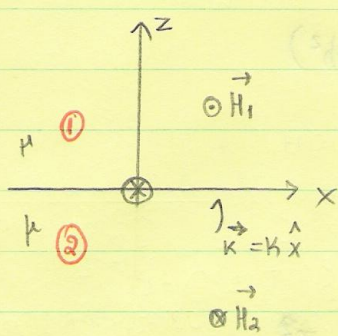 z
① ⊙ H⃗₁
μ
x
μ ②
K⃗ = K x̂
⊗ H⃗₂